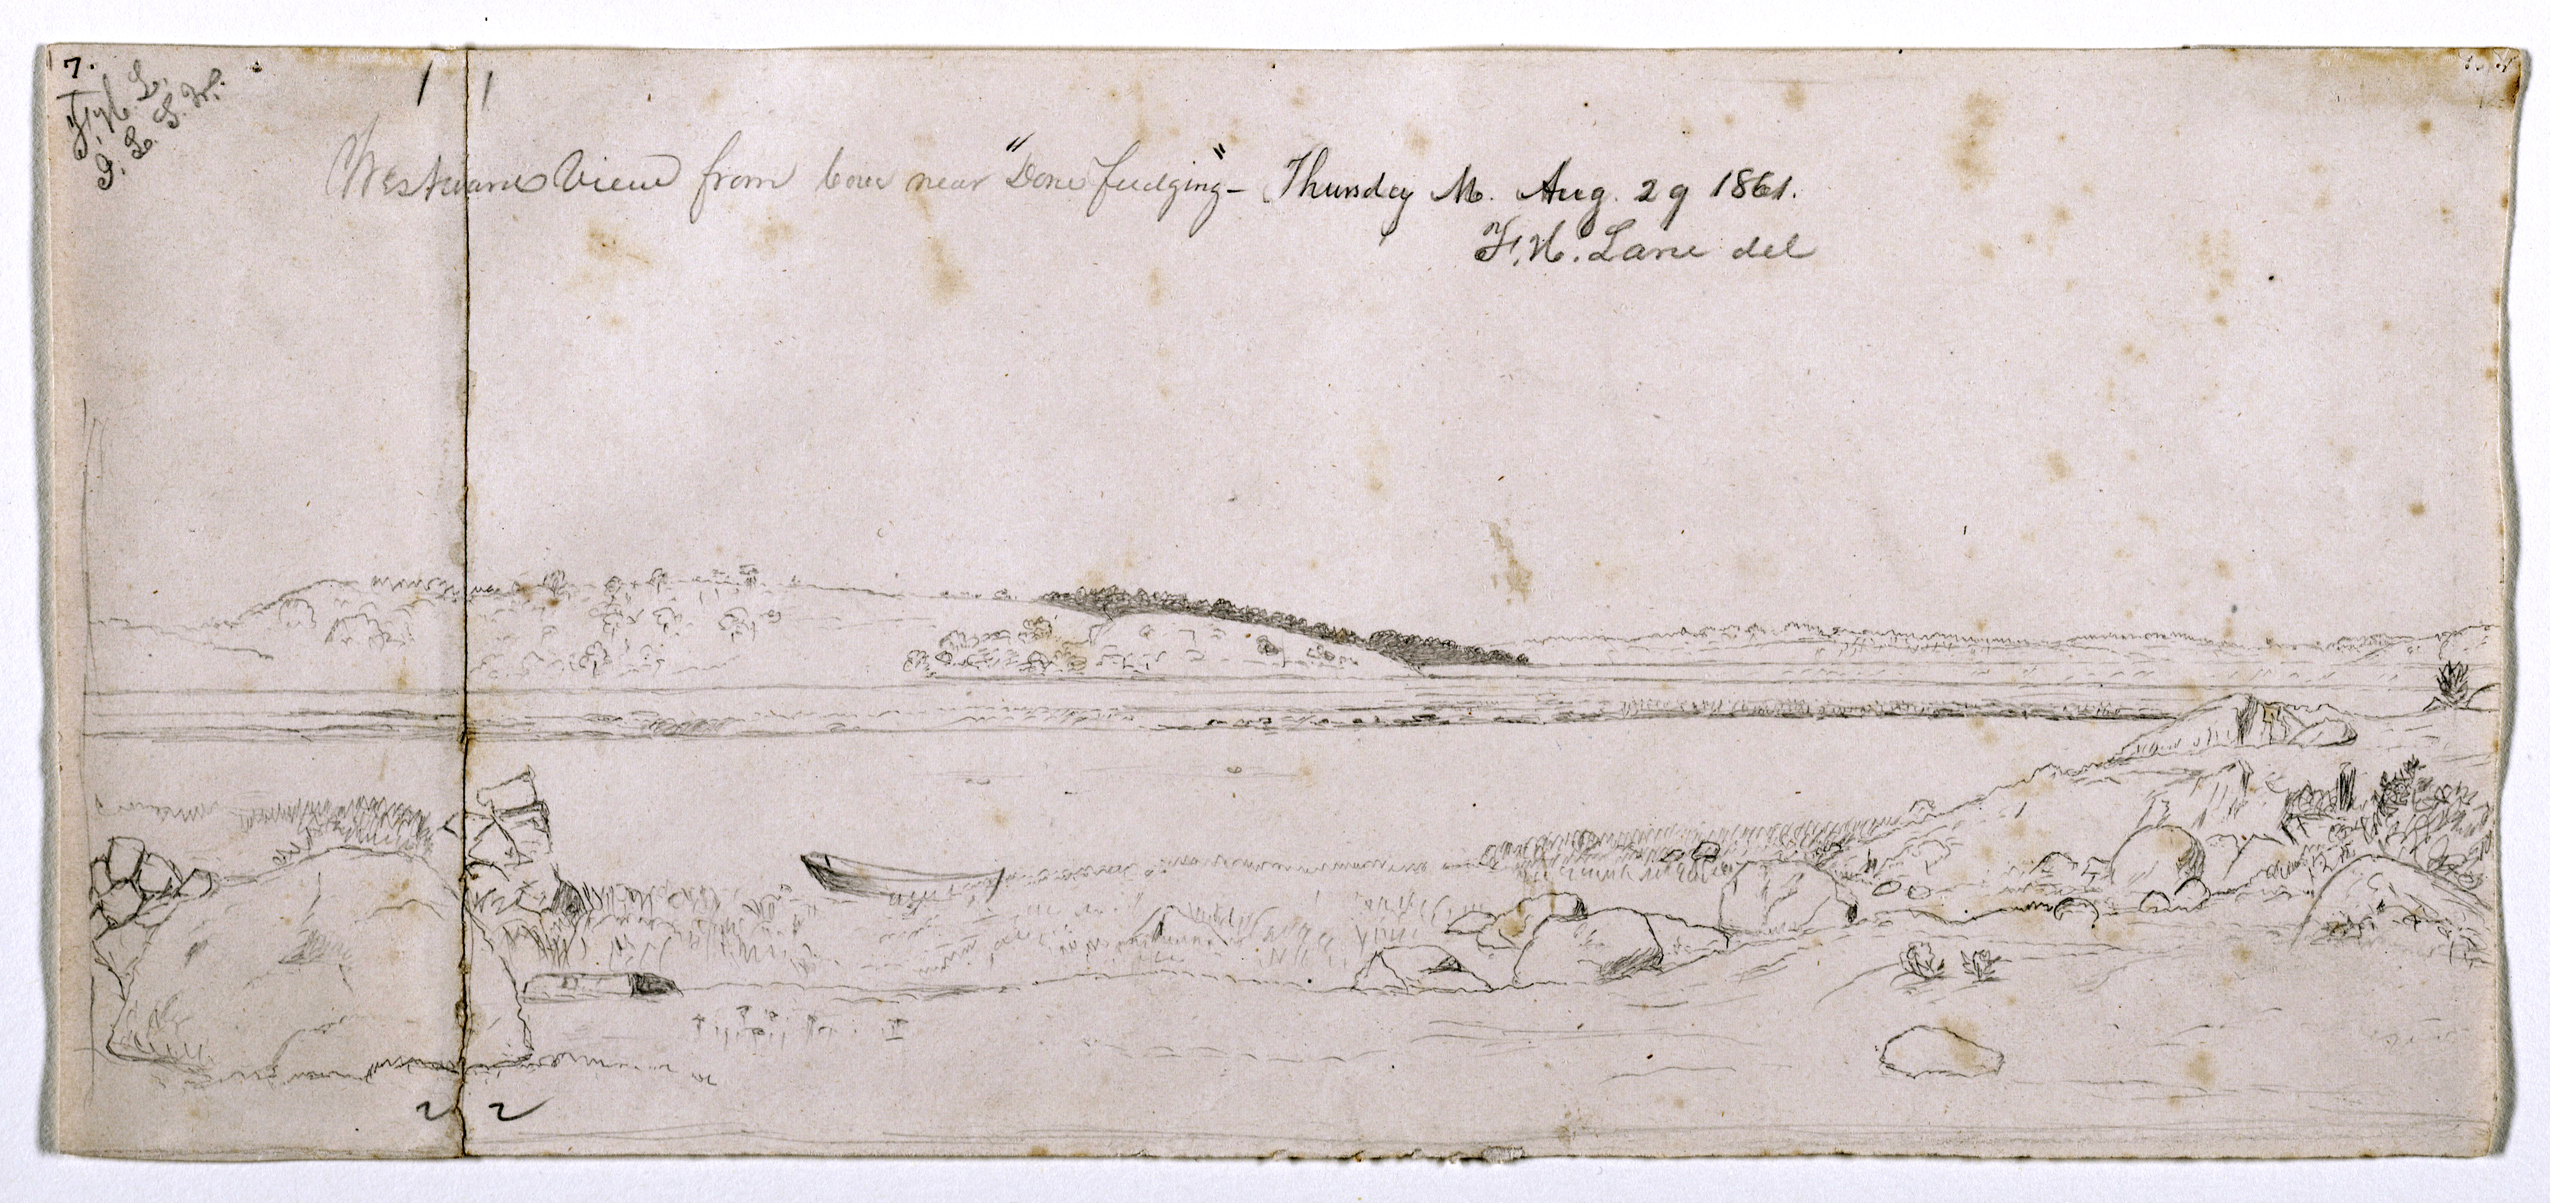 7.
"F. H. L.
J. L. S. Jr.
1 1
Westward View from Cove near "Done fudging" - Thursday M. Aug. 29 1861.
F. H. Lane del
2 2